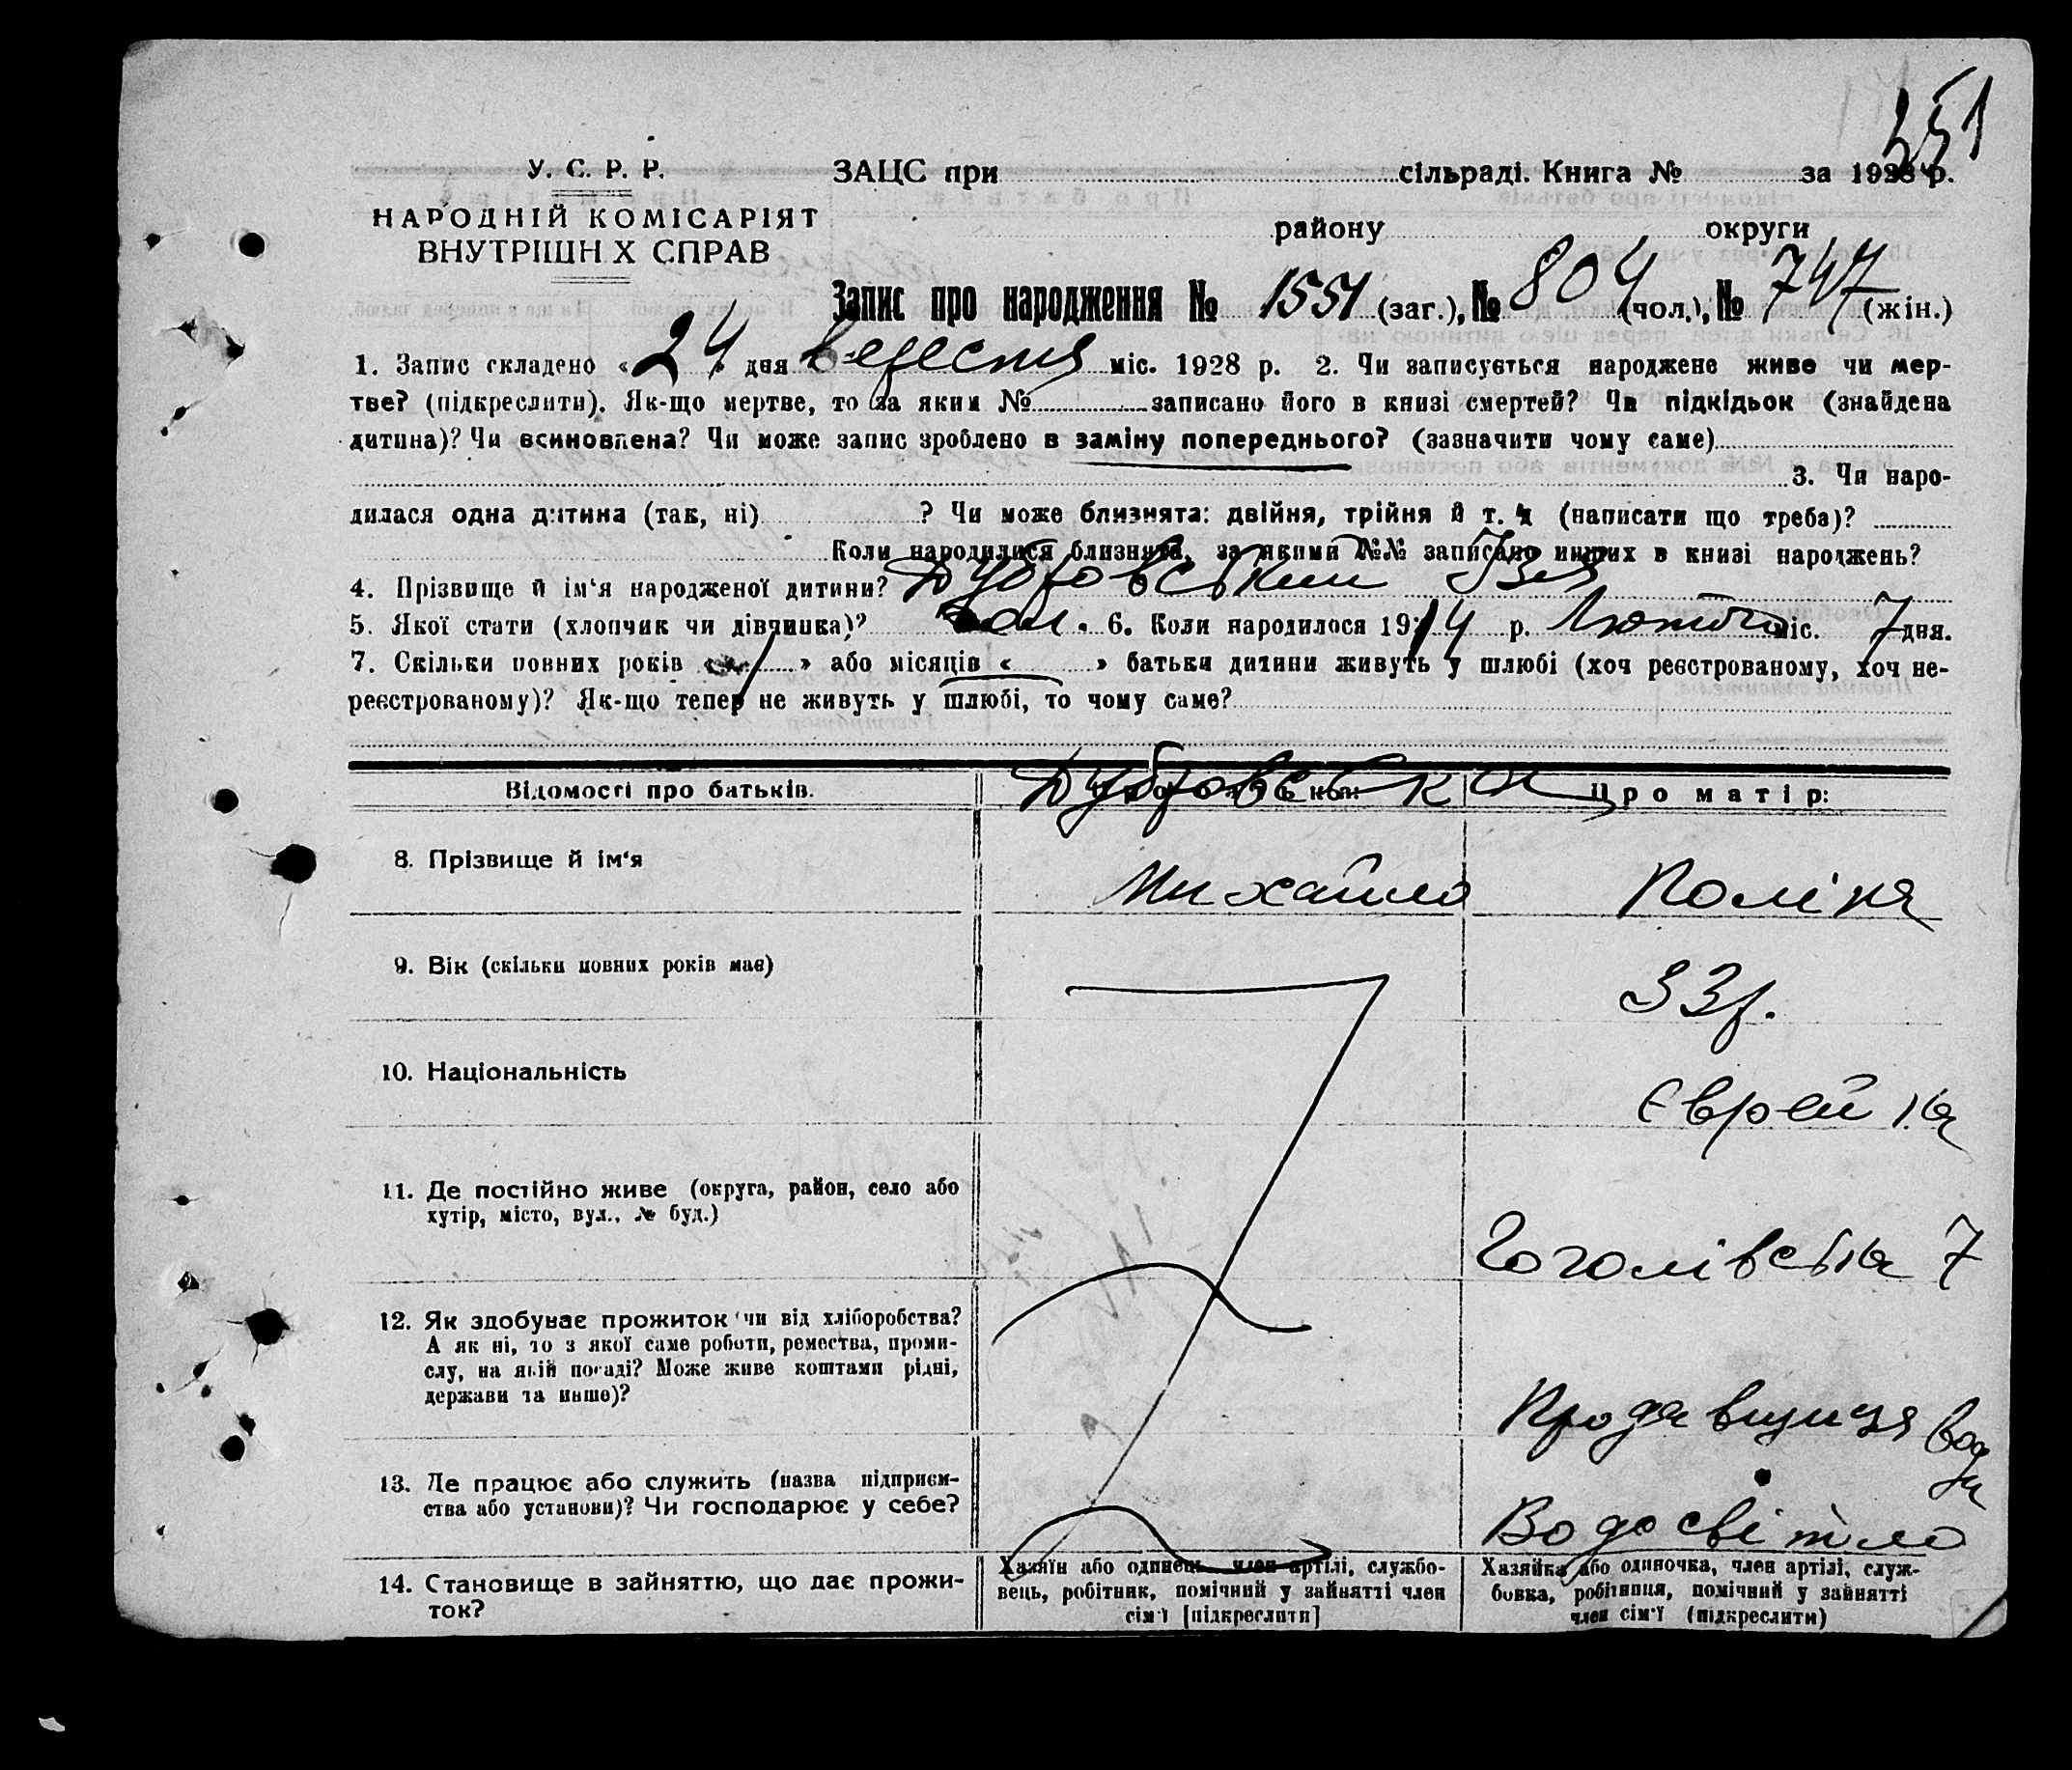 351
У. С. Р. Р. ЗАЦС при сільраді. Книга № за 1928 р.
НАРОДНІЙ КОМІСАРІЯТ
ВНУТРІШН Х СПРАВ
району округи
Запис про народження № 1551 (заг.), № 804 (чол.), № 747 (жін.)
1. Запис складено « 24 » дня вересня міс. 1928 р. 2. Чи записується народжене живе чи мер-
тве? (підкреслити). Як-що мертве, то за яким № записано його в книзі смертей? Чи підкідьок (знайдена
дитина)? Чи всиновлена? Чи може запис зроблено в заміну попереднього? (зазначити чому саме)
3. Чи наро-
дилася одна дитина (так, ні) ? Чи може близнята: двійня, трійня й т. д (написати що треба)?
Коли народилися близнята, за якими №№ записано инших в книзі народжень?
4. Прізвище й ім‘я народженої дитини? Дубровський Ізя
5. Якої статі (хлопчик чи дівчинка)? чол. 6. Коли народилося 1914 р. Лютого міс. 7 дня.
7. Скільки повних років « » або місяців « » батьки дитини живуть у шлюбі (хоч реєстрованому, хоч не-
реєстрованому)? Як-що тепер не живуть у шлюбі, то чому саме?
Відомості про батьків. Дубровська Про матір:
8. Прізвище й ім‘я Михайло Поліна
9. Вік (скільки повних років має) 33 р.
10. Національність Єврейка
11. Де постійно живе (округа, район, село або
хутір, місто, вул., № буд.) Гоголівська 7
12. Як здобуває прожиток чи від хліборобства?
А як ні, то з якої саме роботи, ремества, проми-
слу, на якій посаді? Може живе коштами рідні,
держави та инше)? Продавщиця води
13. Де працює або служить (назва підприєм-
ства або установи)? Чи господарює у себе? Водосвітло
14. Становище в зайняттю, що дає прожи-
ток?
Хазяїн або одинець, член артілі, службо-
вець, робітник, помічний у зайнятті член
сім‘ї [підкреслити]
Хазяйка або одиночка, член артілі, служ-
бовка, робітниця, помічний у зайнятті
член сім‘ї (підкреслити)